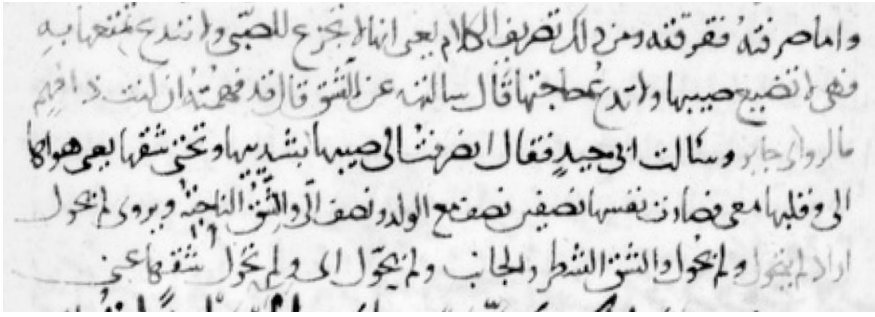 واما صرفته فقر قته ومن ذلك تصريف الكلام يعنى انها لم تجزع للصبى ولم تدع تمتعها به
فهى لم تضيع صبيها ولم تدع حاجتها قال سالته عن الشق قال قد فهمته ان كنت
وسالت ابى جيد فقال انصرفت الى صبيها بثدييها وتحتى شقها يعنى هواها
الى وقلبها معى فصارت نفسها نصفين نصف مع الولد ونصف الى والشق الناحية ويروى لم يحول
اراد لم يتحول ولم تحول والشق الشطر والجانب ولم يحول الى ولم تحول شقها عنى